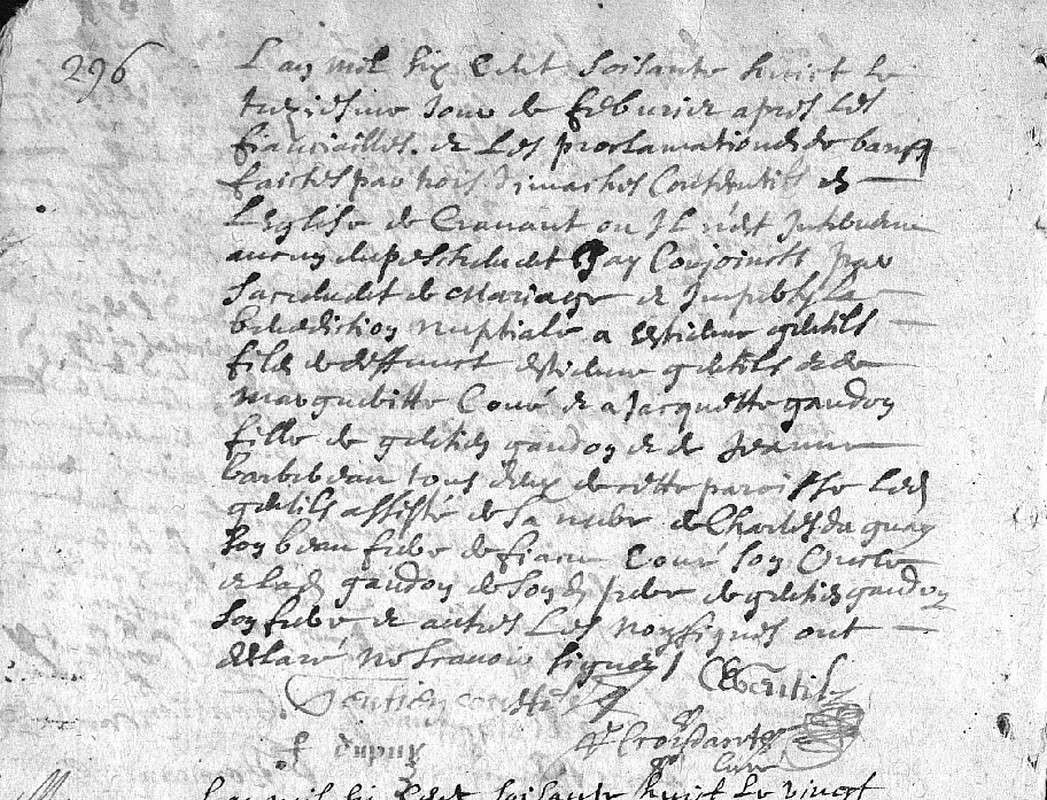 296
L'an mil six cent soisante huict le
treziesme Jour de feburier apres les
fiancialles. et les proclamationes de bans
faictes par trois dimaches consecutifs en
L'eglise de Cravant ou Il n'est Intervenu
aucun empeschement Jay Conjoincts par
sacrement de Mariage et Imparty la
benediction nuptiale a estienne gentils
fils de deffunct estienne gentils et de
Margueritte Coué et a Jacquette gaudon
fille de gentien gaudon et de Jeanne
barbeau tous deux de cette paroisse led
gentils assisté de sa mere de Charles du guay
son beau frere de fiacre Coué son Oncle
et lad gaudon de sond pere de gentien gaudon
son frere et autres Les non signes ont
declaré ne scavoir signer
E Gentils
Gentien
f dupuy
curé
L'an mil six cent soisante huict le vinct